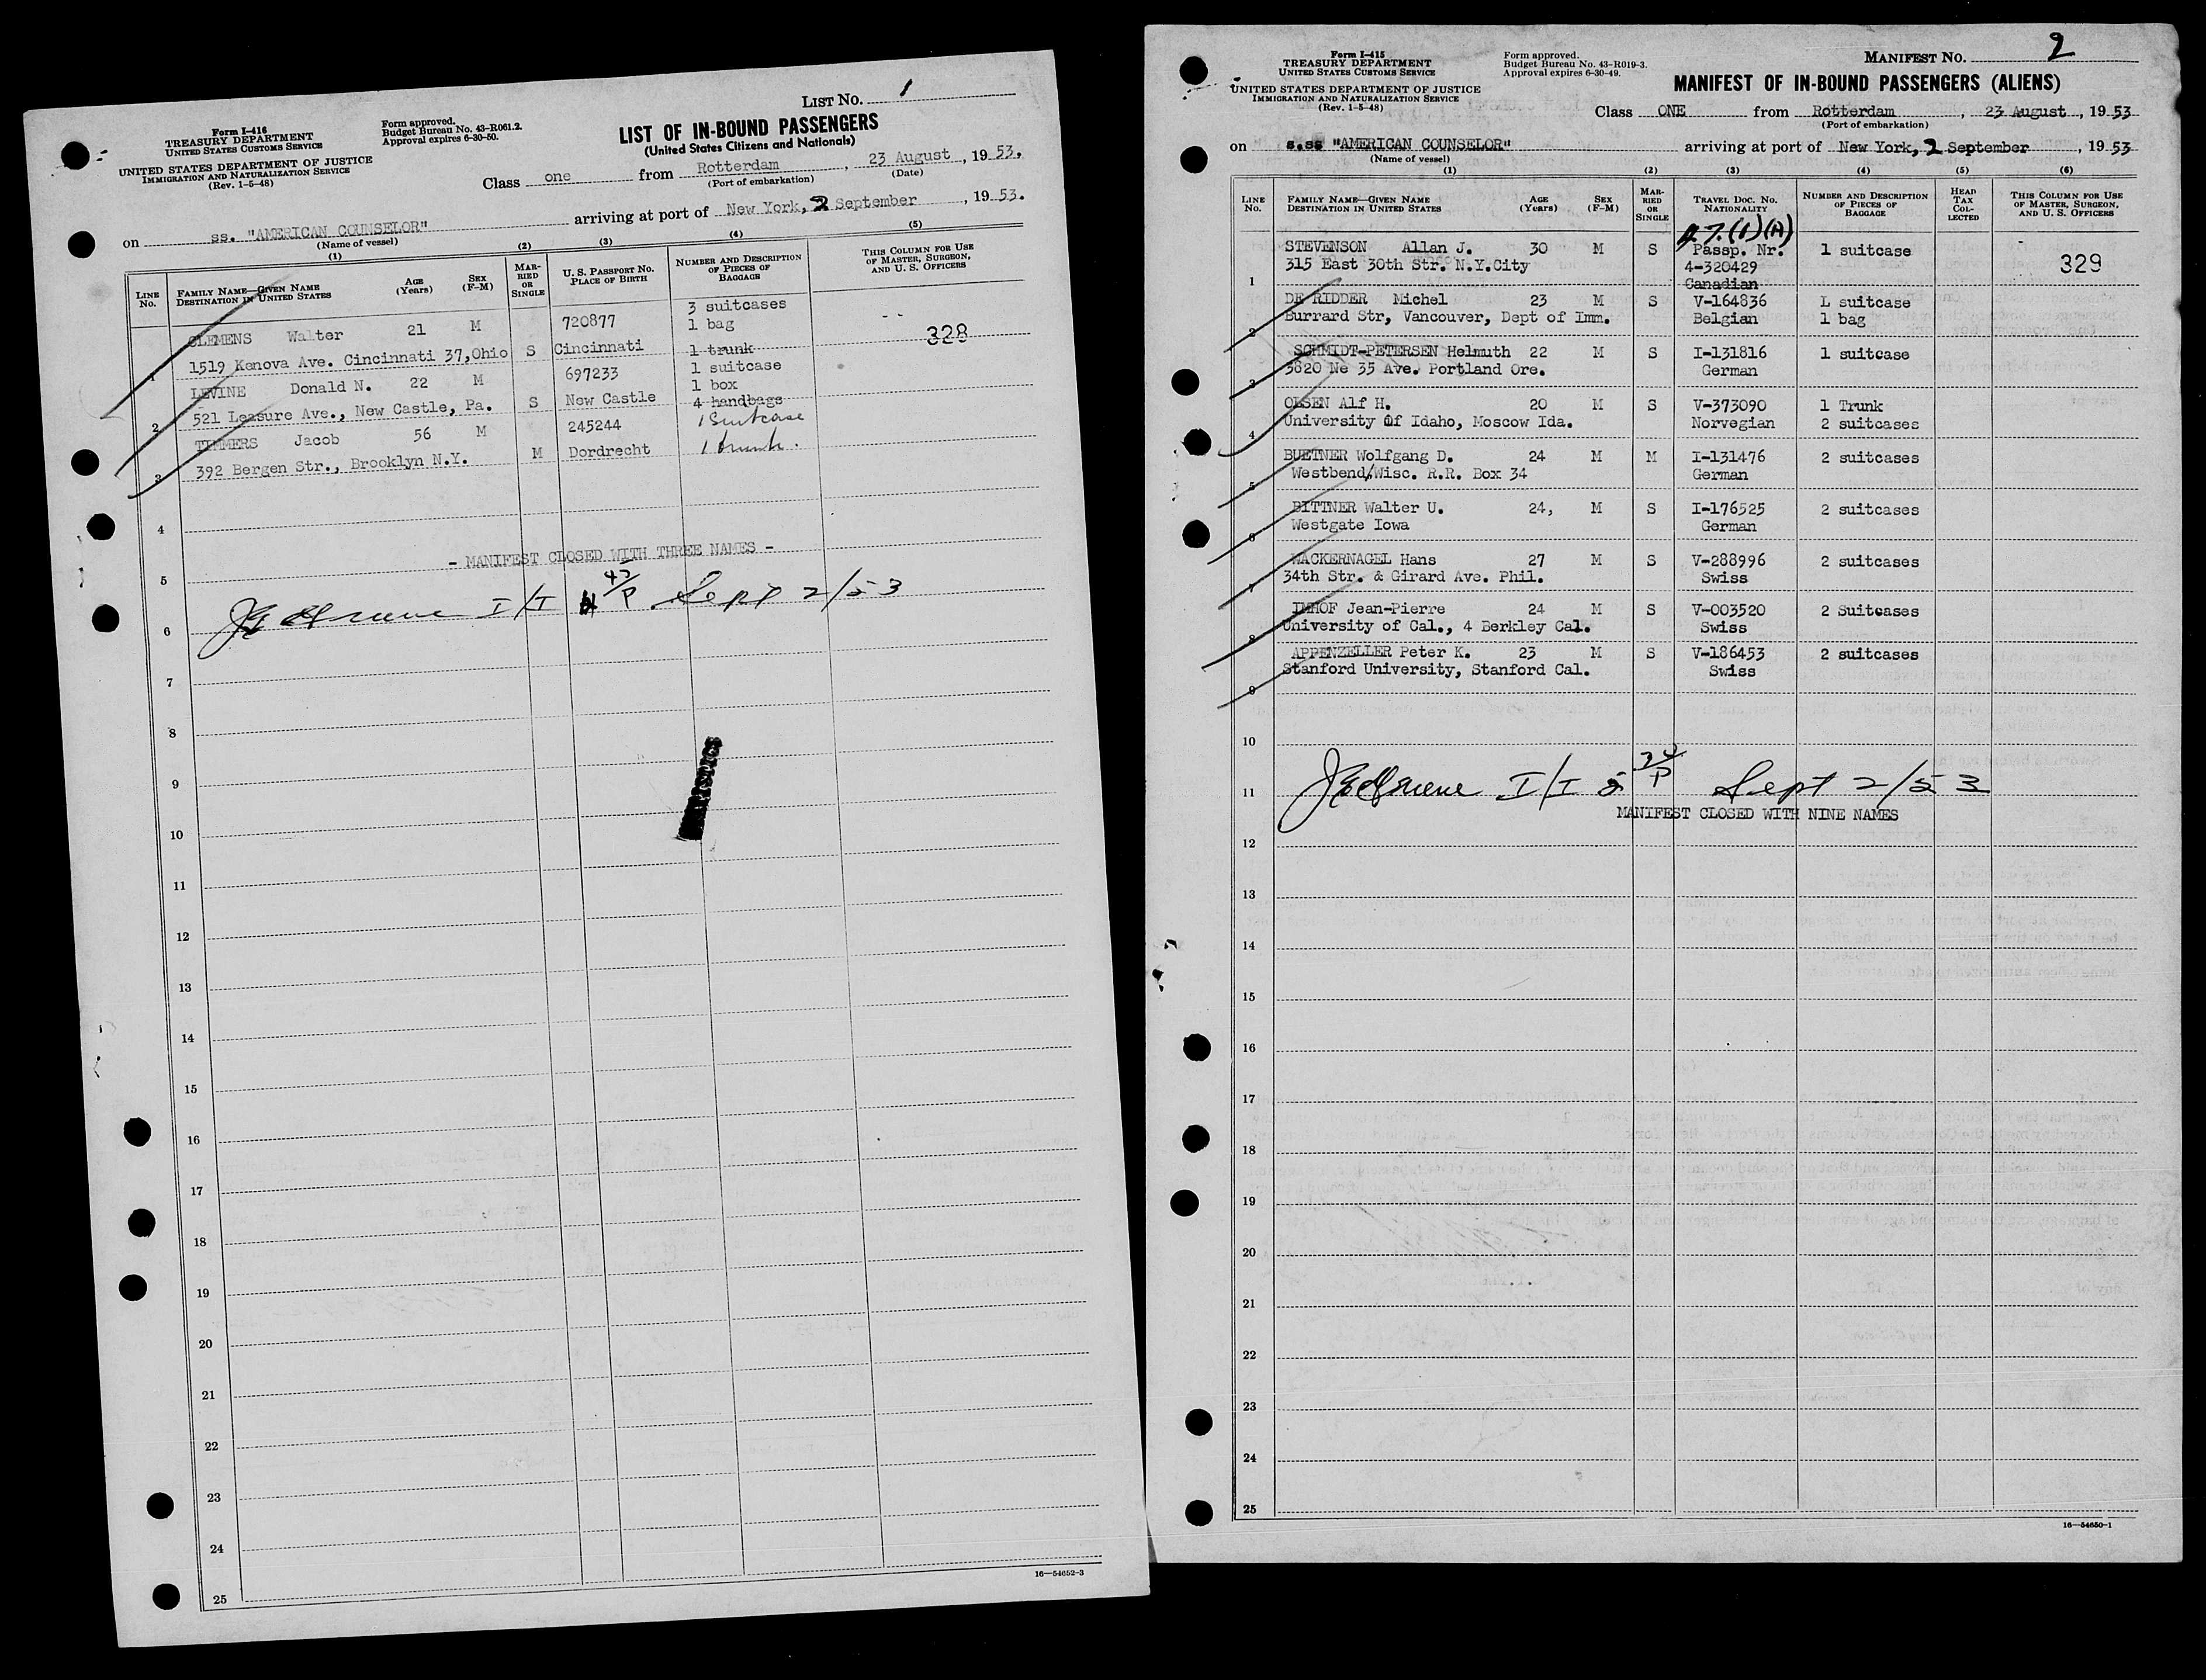 LIST No. 1
Form I-416
TREASURY DEPARTMENT
UNITED STATES CUSTOMS SERVICE
UNITED STATES DEPARTMENT OF JUSTICE
IMMIGRATION AND NATURALIZATION SERVICE
(Rev. 1-5-48)
Form approved.
Budget Bureau No. 43-R061.2.
Approval expires 6-30-50.
LIST OF IN-BOUND PASSENGERS
(United States Citizens and Nationals)
Class one from Rotterdam, 23 August, 1953.
(Port of embarkation) (Date)
on ss. "AMERICAN COUNSELOR" arriving at port of New York, 2 September, 1953.
(Name of vessel)
(1) (2) (3) (4) (5)
LINE No. FAMILY NAME—GIVEN NAME DESTINATION IN UNITED STATES AGE (Years) SEX (F-M) MARRIED OR SINGLE U. S. PASSPORT NO. PLACE OF BIRTH NUMBER AND DESCRIPTION OF PIECES OF BAGGAGE THIS COLUMN FOR USE OF MASTER, SURGEON, AND U. S. OFFICERS
3 suitcases
CLEMENS Walter 21 M 720877 1 bag 328
1 1519 Kenova Ave. Cincinnati 37,Ohio S Cincinnati 1 trunk
1 suitcase
LEVINE Donald N. 22 M 697233 1 box
2 521 Leasure Ave., New Castle, Pa. S New Castle 4 handbags
TIMMERS Jacob 56 M 245244 1 Suitcase
3 392 Bergen Str., Brooklyn N.Y. M Dordrecht 1 trunk.
4
- MANIFEST CLOSED WITH THREE NAMES -
5
I/I 45/P Sept 2/53
6
7
8
9
10
11
12
13
14
15
16
17
18
19
20
21
22
23
24
25
16—54652-3
Form I-415
TREASURY DEPARTMENT
UNITED STATES CUSTOMS SERVICE
UNITED STATES DEPARTMENT OF JUSTICE
IMMIGRATION AND NATURALIZATION SERVICE
(Rev. 1-5-48)
Form approved.
Budget Bureau No. 43-R019-3.
Approval expires 6-30-49.
MANIFEST No. 2
MANIFEST OF IN-BOUND PASSENGERS (ALIENS)
Class ONE from Rotterdam, 23 August, 1953
(Port of embarkation)
on s.ss "AMERICAN COUNSELOR" arriving at port of New York, 2 September, 1953
(Name of vessel)
(1) (2) (3) (4) (5) (6)
LINE No. FAMILY NAME—GIVEN NAME DESTINATION IN UNITED STATES AGE (Years) SEX (F-M) MARRIED OR SINGLE TRAVEL DOC. NO. NATIONALITY NUMBER AND DESCRIPTION OF PIECES OF BAGGAGE HEAD TAX COLLECTED THIS COLUMN FOR USE OF MASTER, SURGEON, AND U. S. OFFICERS
4.7.(1)(A)
STEVENSON Allan J. 30 M S Passp. Nr. 1 suitcase
315 East 30th Str. N.Y.City 4-320429 329
1 Canadian
DE RIDDER Michel 23 M S V-164836 L suitcase
Burrard Str, Vancouver, Dept of Imm. Belgian 1 bag
2
SCHMIDT-PETERSEN Helmuth 22 M S I-131816 1 suitcase
3 3820 Ne 35 Ave. Portland Ore. German
OLSEN Alf H. 20 M S V-373090 1 Trunk
4 University Of Idaho, Moscow Ida. Norvegian 2 suitcases
BUETNER Wolfgang D. 24 M M I-131476 2 suitcases
5 Westbend/Wisc. R.R. Box 34 German
BITTNER Walter U. 24, M S I-176525 2 suitcases
6 Westgate Iowa German
WACKERNAGEL Hans 27 M S V-288996 2 suitcases
7 34th Str. & Girard Ave. Phil. Swiss
IMHOF Jean-Pierre 24 M S V-003520 2 Suitcases
8 University of Cal., 4 Berkley Cal. Swiss
APPENZELLER Peter K. 23 M S V-186453 2 suitcases
9 Stanford University, Stanford Cal. Swiss
10
11 I/I Sept 2/53
MANIFEST CLOSED WITH NINE NAMES
12
13
14
15
16
17
18
19
20
21
22
23
24
25
16—54650-1